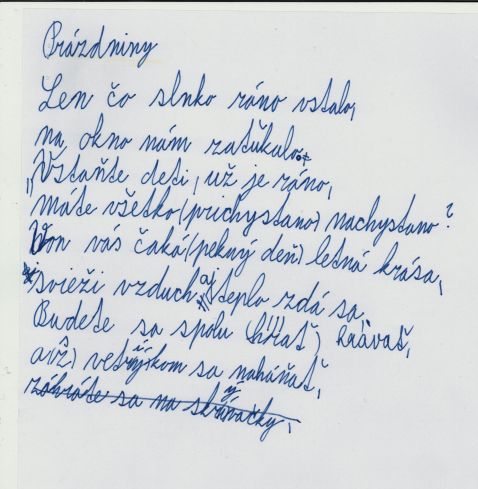 Prázdniny
Len čo slnko ráno vstalo,
na okno nám zaťukalo.
„Vstaňte deti, už je ráno,
máte všetko (prichystano) nachystano?
Von vás čaká (pekný deň) letná krása,
svieži vzduch, aj teplo zdá sa.
Budete sa spolu (hrať) hrávať,
a (iž) vetríkom sa naháňať,
zahráte sa na skrývačky,